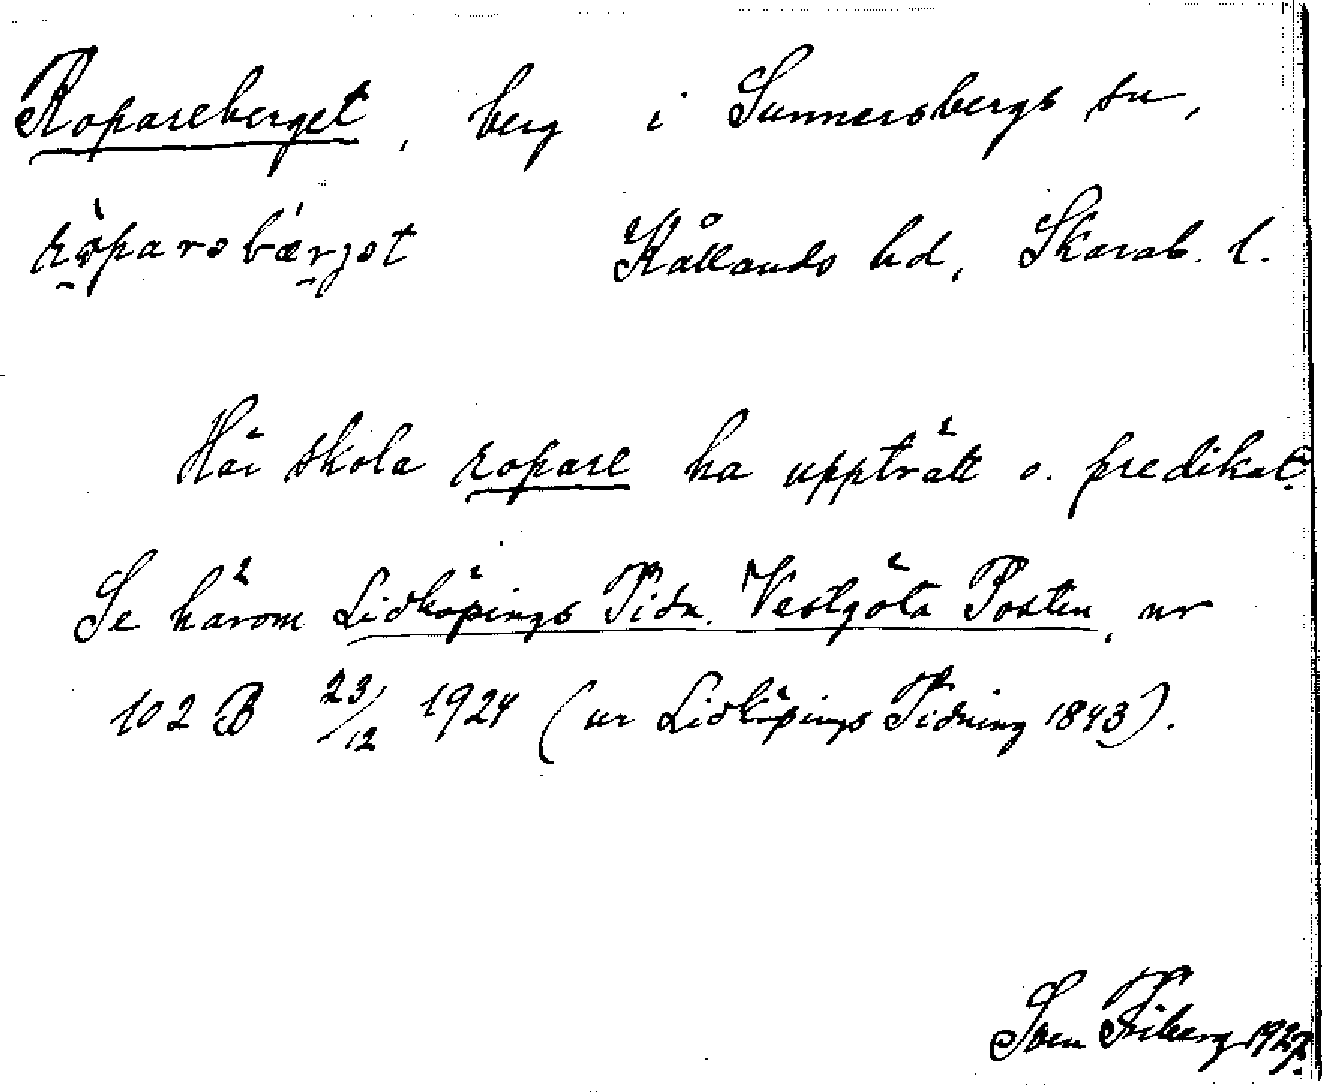 Ropareberget, berg i Sunnersbergs sn,
ròparəbǽrjət Kållands hd, Skarab. l.
Här skola ropare ha uppträtt o. predikat.
Se härom Lidköpings Tidn. Vestgöta Posten, nr
102 B 23/12 1924 (ur Lidköpings Tidning 1843).
Sven Friberg 1927.